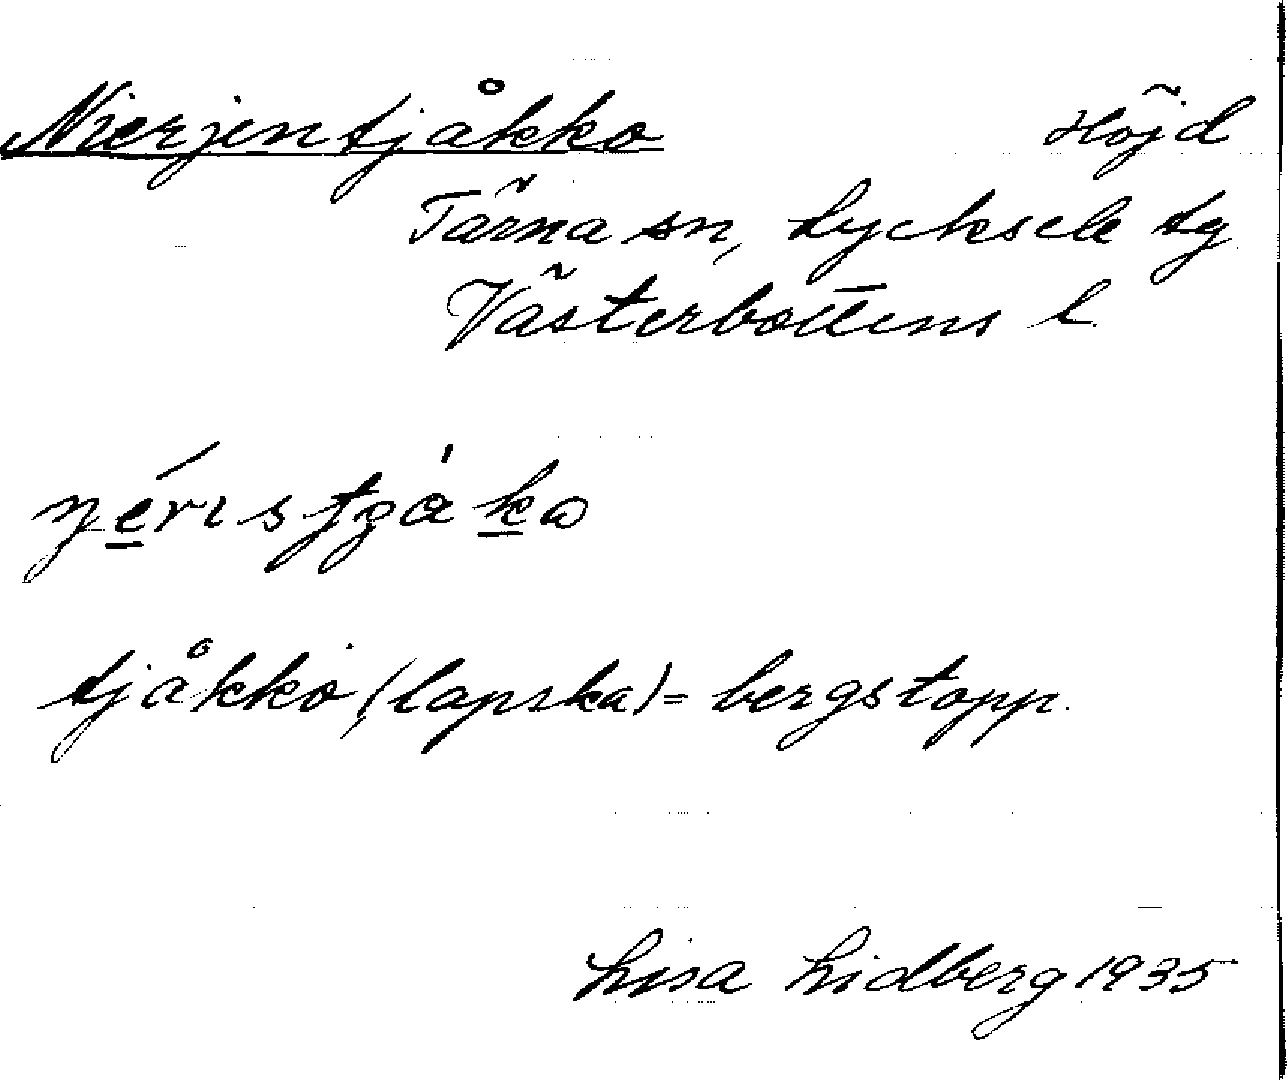 Nierjentjåkko Höjd
Tärna sn, Lycksele tg
Västerbottens l.
tjåkko, (lapska) = bergstopp.
Lisa Lidberg 1935